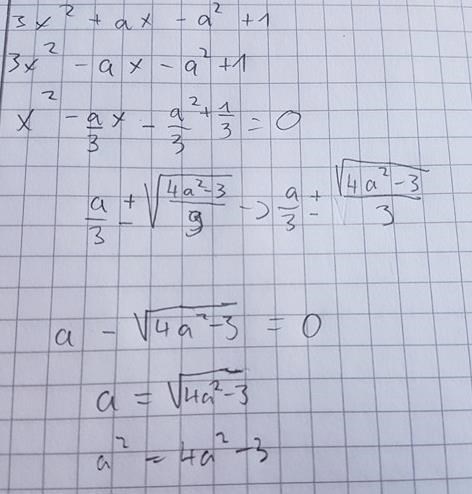 3x² + ax - a² + 1
3x² - ax - a² + 1
x² - a/3 x - a²/3 + 1/3 = 0
a/3 ± √(4a²-3 / 9) -> a/3 ± √(4a²-3) / 3
a - √(4a²-3) = 0
a = √(4a²-3)
a² = 4a² - 3